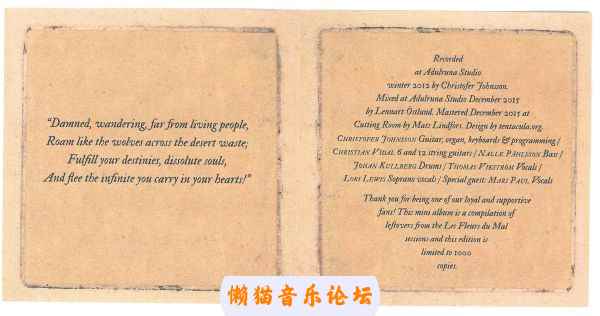 “Damned, wandering, far from living people,
Roam like the wolves across the desert waste;
Fulfill your destinies, dissolute souls,
And flee the infinite you carry in your hearts!”
Recorded
at Adulruna Studio
winter 2012 by Christofer Johnsson.
Mixed at Adulruna Studio December 2015
by Lennart Östlund. Mastered December 2015 at
Cutting Room by Mats Lindfors. Design by tentacula.org.
Christofer Johnsson Guitar, organ, keyboards & programming /
Christian Vidal 6 and 12 string guitars / Nalle Påhlsson Bass /
Johan Kullberg Drums / Thomas Vikström Vocals /
Lori Lewis Soprano vocals / Special guest: Mari Paul Vocals
Thank you for being one of our loyal and supportive
fans! This mini album is a compilation of
leftovers from the Les Fleurs du Mal
sessions and this edition is
limited to 1000
copies.
懒猫音乐论坛